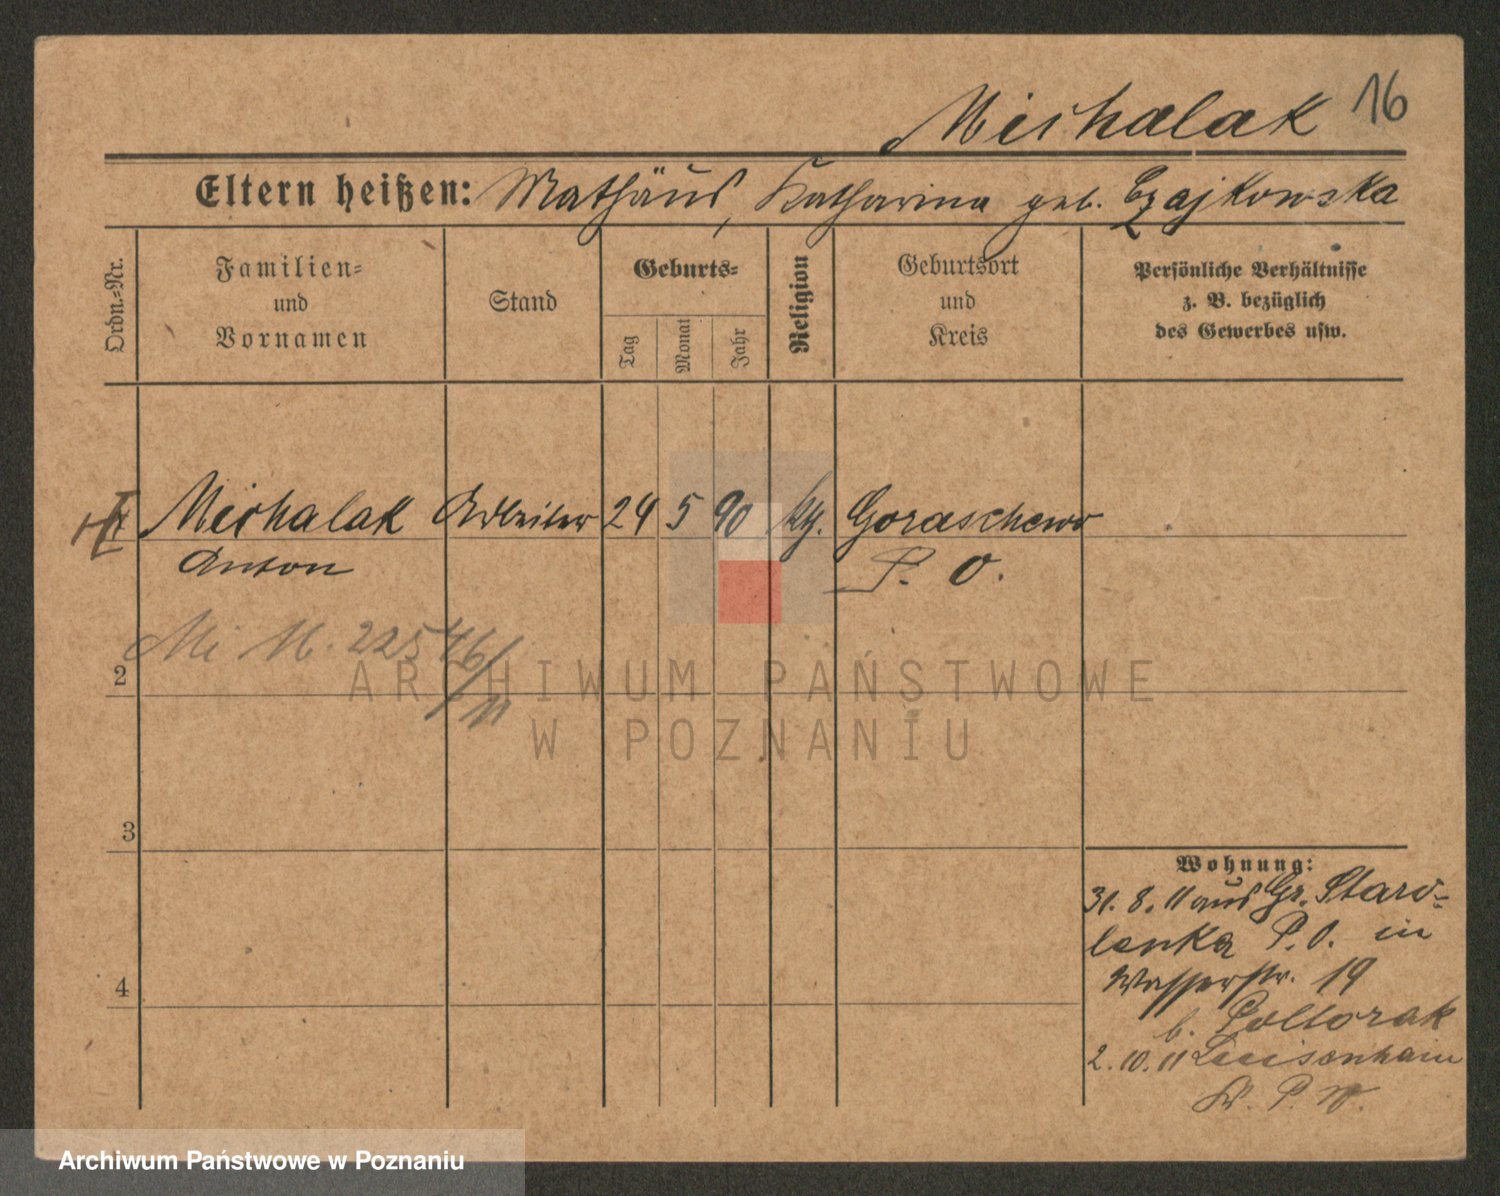 Michalak 16
Eltern heißen: Mathäus, Katharina geb. Czajkowska
Ordn.-Nr.
Familien-
und
Vornamen
Stand
Geburts-
Tag
Monat
Jahr
Religion
Geburtsort
und
Kreis
Persönliche Verhältnisse
z. B. bezüglich
des Gewerbes usw.
Michalak Arbeiter 24 5 90 kth. Goraschewo
Anton P. O.
Mi N. 22546/11
2
3
4
Wohnung:
31. 8. 11 aus Gr. Staro-
lenka P. O. in
Wasserstr. 19
b. Poltorak
2. 10. 11 Luisenhain
Kr. P. W.
ARCHIWUM PAŃSTWOWE
W POZNANIU
Archiwum Państwowe w Poznaniu